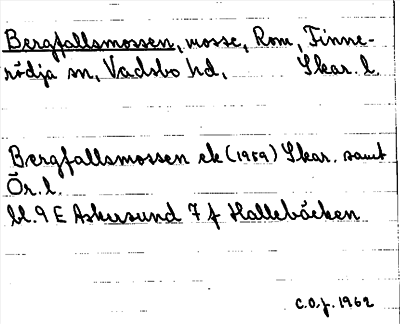 Bergfallsmossen, mosse, Rom, Finne-
rödja sn, Vadsbo hd, Skar. l.
Bergfallsmossen ek (1959) Skar. samt
Ör. l.
bl. 9 E Askersund 7 f Hallebäcken
C.O.J. 1962